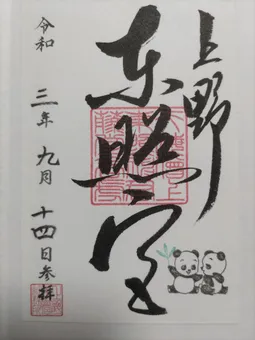 上野
東照宮
令和三年九月十四日参拝